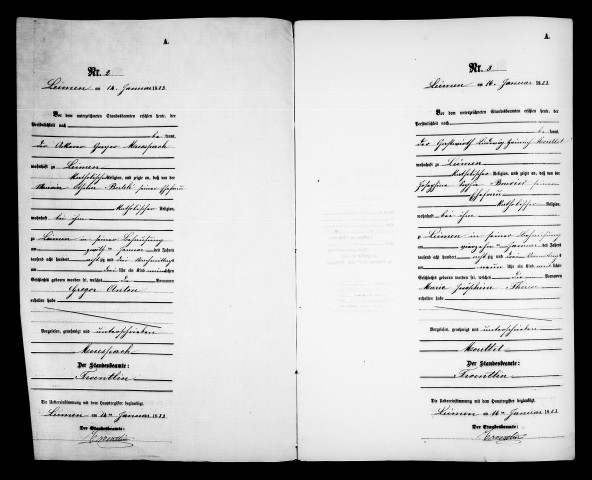 A.
Nr. 2
Leimen am 14. Januar 1883
Vor dem unterzeichneten Standesbeamten erschien heute, der
Persönlichkeit nach
be kannt,
der Ackerer Gregor Meuspach
wohnhaft zu Leimen
katholischer Religion, und zeigte an, daß von der
seiner Ehefrau
katholischer Religion,
wohnhaft bei ihm
zu Leimen in seiner Behausung
am Januar des Jahres
tausend acht hundert achtzig und drei Nachmittags
um drei Uhr ein Kind männlichen
Geschlechts geboren worden ist, welches die Vornamen
Gregor Anton
erhalten habe
Vorgelesen, genehmigt und unterschrieben
Meuspach
Der Standesbeamte:
Troentlin
Die Uebereinstimmung mit dem Hauptregister beglaubigt.
Leimen am 14ten Januar 1883
Der Standesbeamte:
Troentlin
A.
Nr. 3
Leimen am 16. Januar 1883
Vor dem unterzeichneten Standesbeamten erschien heute, der
Persönlichkeit nach
be kannt,
der Gastwirth Ludwig Heinrich
wohnhaft zu Leimen
katholischer Religion, und zeigte an, daß von der
Josephine seiner
Ehefrau
katholischer Religion,
wohnhaft bei ihm
zu Leimen in seiner Behausung
am vierzehn Januar des Jahres
tausend acht hundert achtzig und drei Vormittags
um neun Uhr ein Kind
Geschlechts geboren worden ist, welches die Vornamen
Maria
erhalten habe
Vorgelesen, genehmigt und unterschrieben
Der Standesbeamte:
Troentlin
Die Uebereinstimmung mit dem Hauptregister beglaubigt.
Leimen am 16ten Januar 1883
Der Standesbeamte:
Troentlin